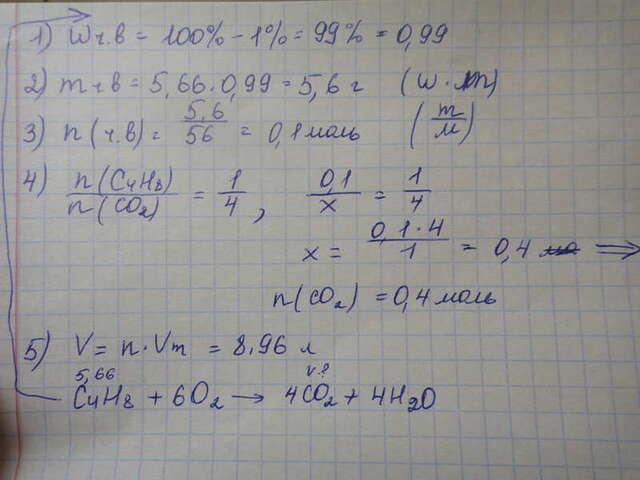 1) Wч.в = 100% - 1% = 99% = 0,99
2) mч.в = 5,66 · 0,99 = 5,6 г (w · m)
3) n(ч.в) = 5,6/56 = 0,1 моль (m/M)
4) n(C4H8)/n(CO2) = 1/4, 0,1/x = 1/4
x = 0,1·4/1 = 0,4 ⇒
n(CO2) = 0,4 моль
5) V = n · Vm = 8,96 л
5,66 v-?
C4H8 + 6O2 → 4CO2 + 4H2O